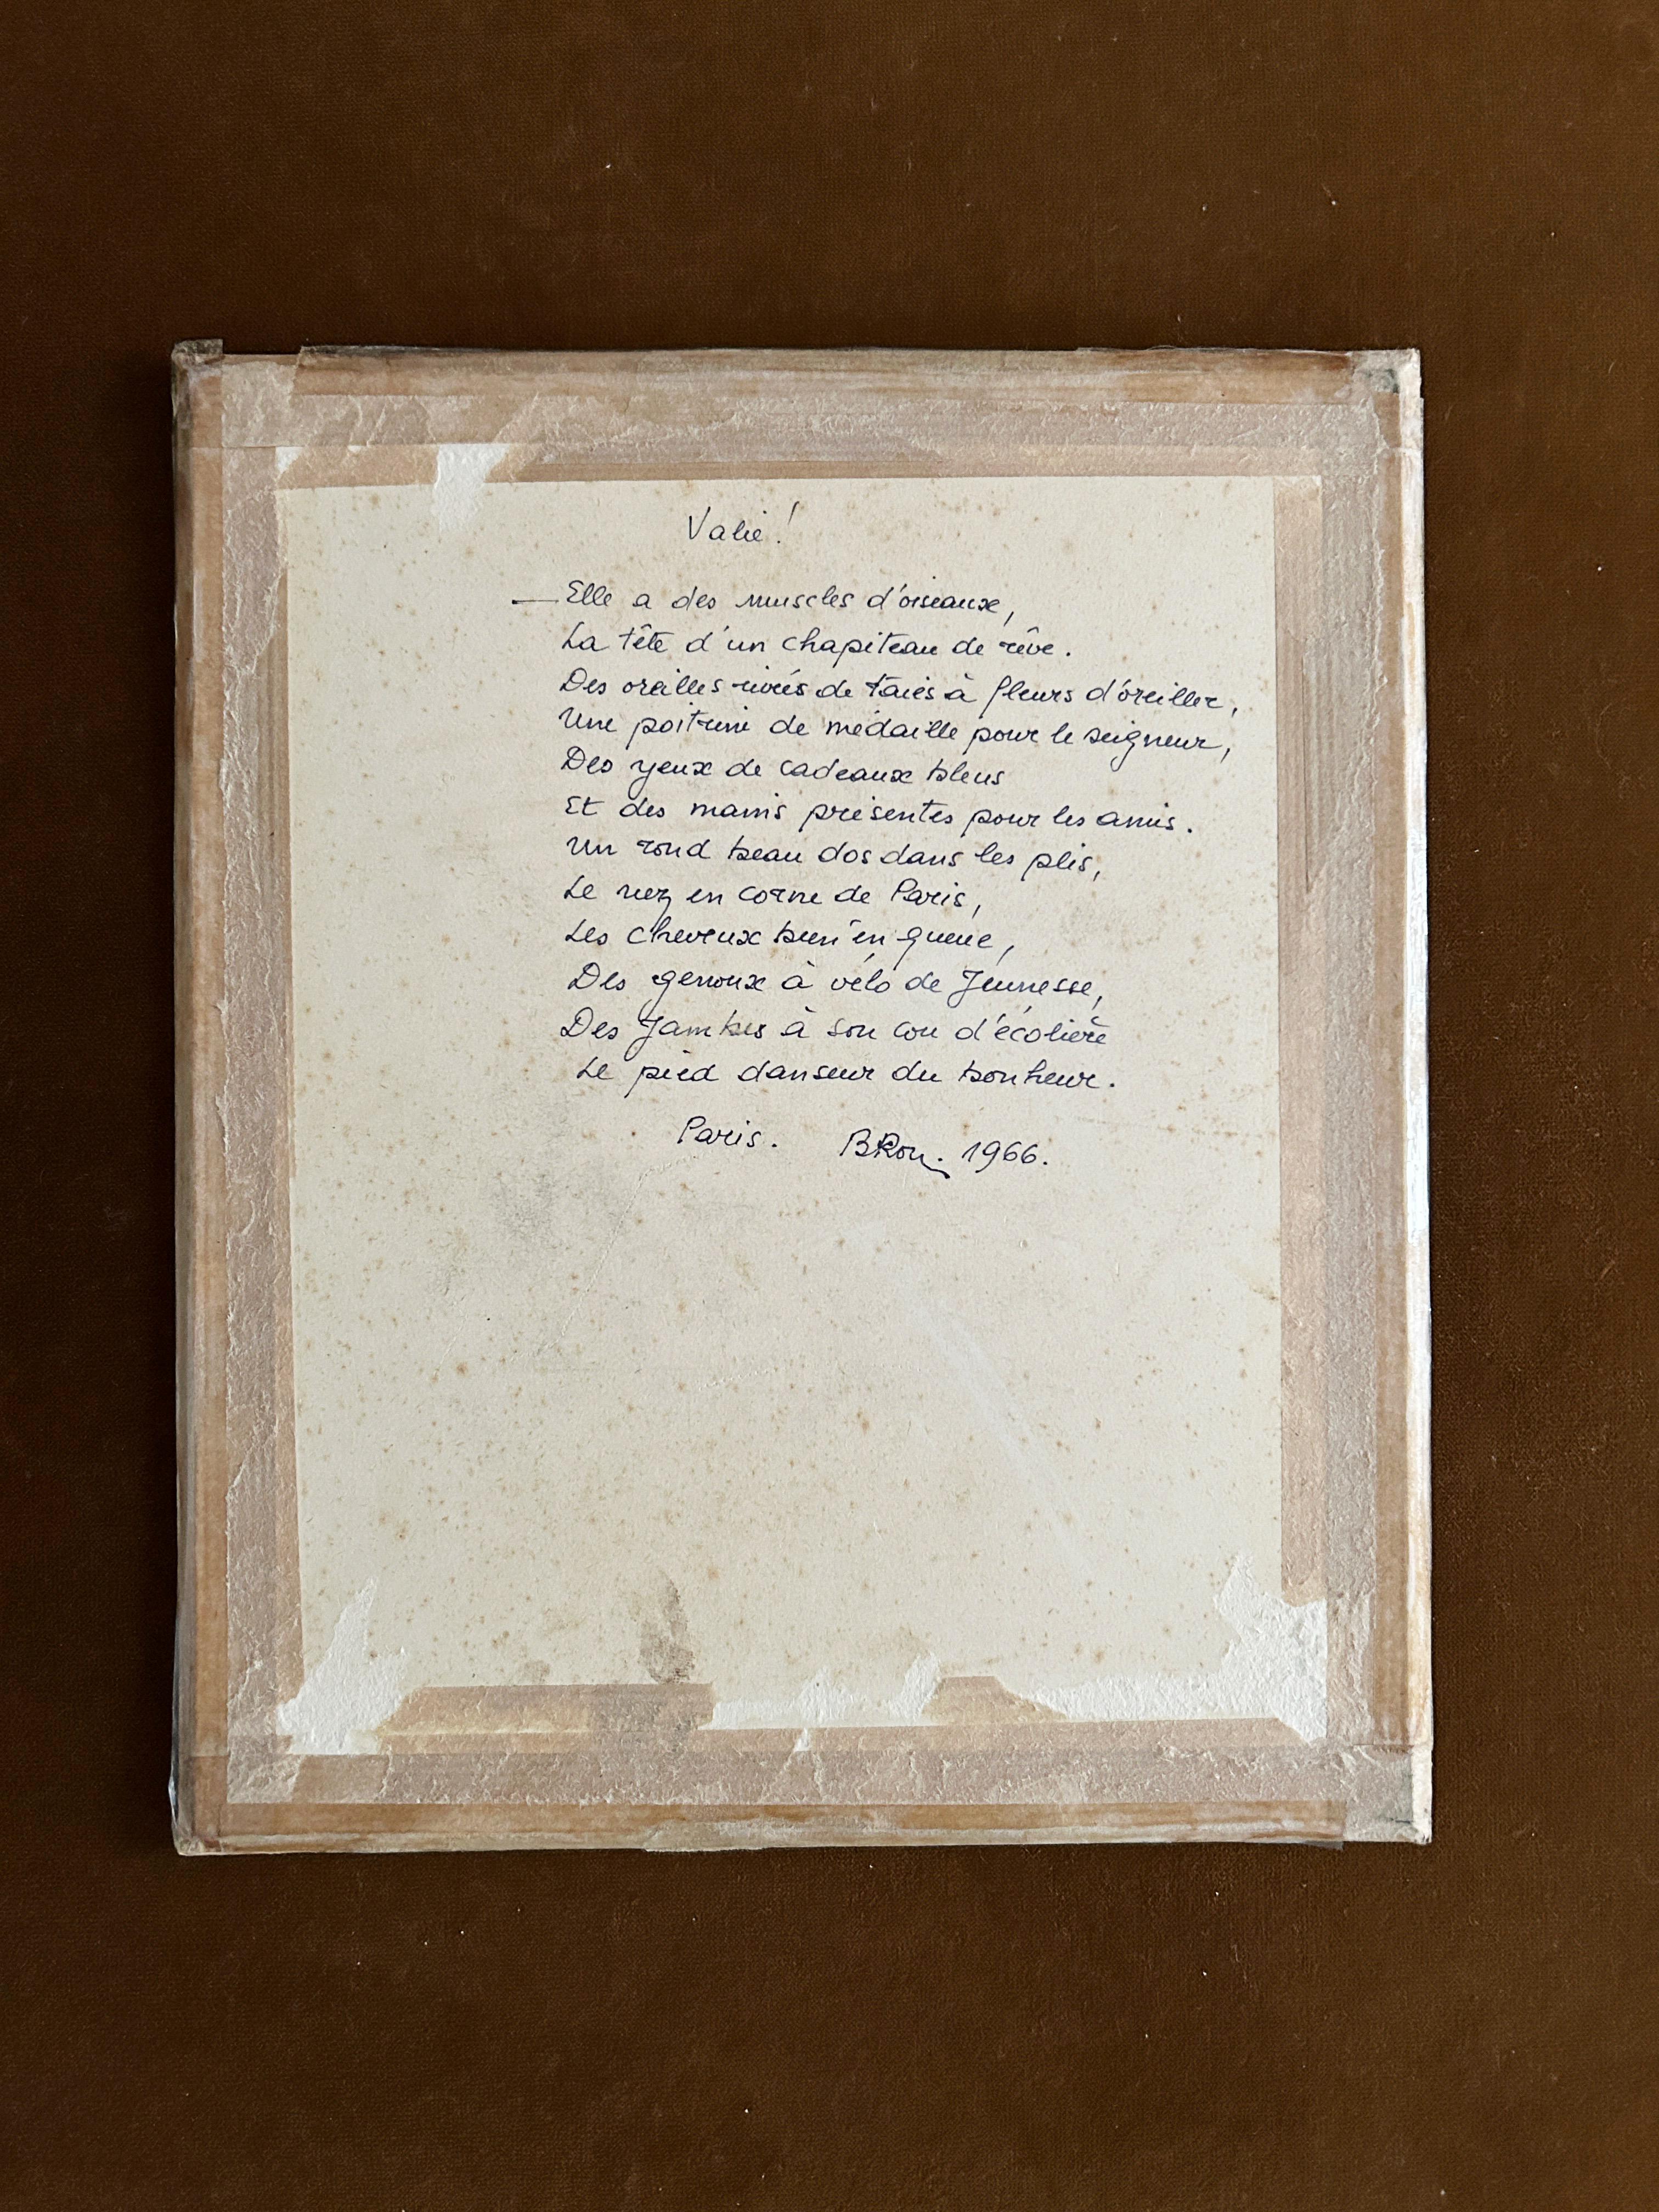 Valie!
— Elle a des muscles d'oiseaux,
La tête d'un chapiteau de rêve.
Des oreilles rivées de taies à fleurs d'oreiller,
Une poitrine de médaille pour le seigneur,
Des yeux de cadeaux bleus
Et des mains présentes pour les amis.
Un rond beau dos dans les plis,
Le nez en corne de Paris,
Les cheveux bien en queue,
Des genoux à vélo de Jeunesse,
Des Jambes à son cou d'écolière
Le pied danseur du bonheur.
Paris. BRou. 1966.